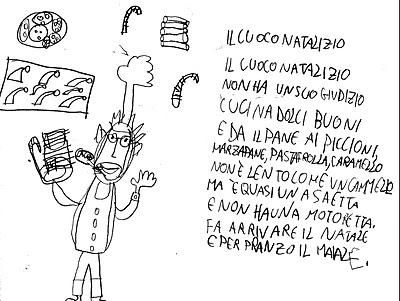 IL CUOCO NATALIZIO
IL CUOCO NATALIZIO
NON HA UN SUO GIUDIZIO
CUCINA DOLCI BUONI
E DA IL PANE AI PICCIONI,
MARZAPANE, PASTAFROLLA, CARAMELLO
NON È LENTO COME UN CAMMELLO
MA È QUASI UNA SAETTA
E NON HA UNA MOTORETTA.
FA ARRIVARE IL NATALE
E PER PRANZO IL MAIALE.